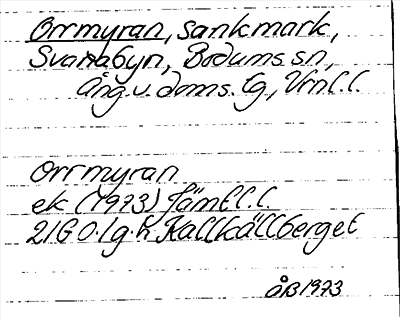 Orrmyran, sankmark,
Svanabyn, Bodums sn,
Ång.v.doms.tg, Vrnl.l.
Orrmyran
ek (1973) Jämtl.l.
21G 0-1g-h Kallkällberget
ÅB 1973